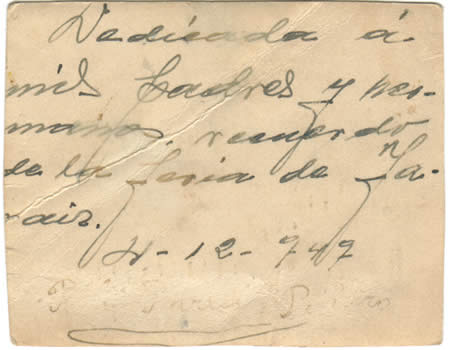 Dedicada á
mis Padres y her-
manos, recuerdo
de la feria de Ja-
raiz.
4-12-947